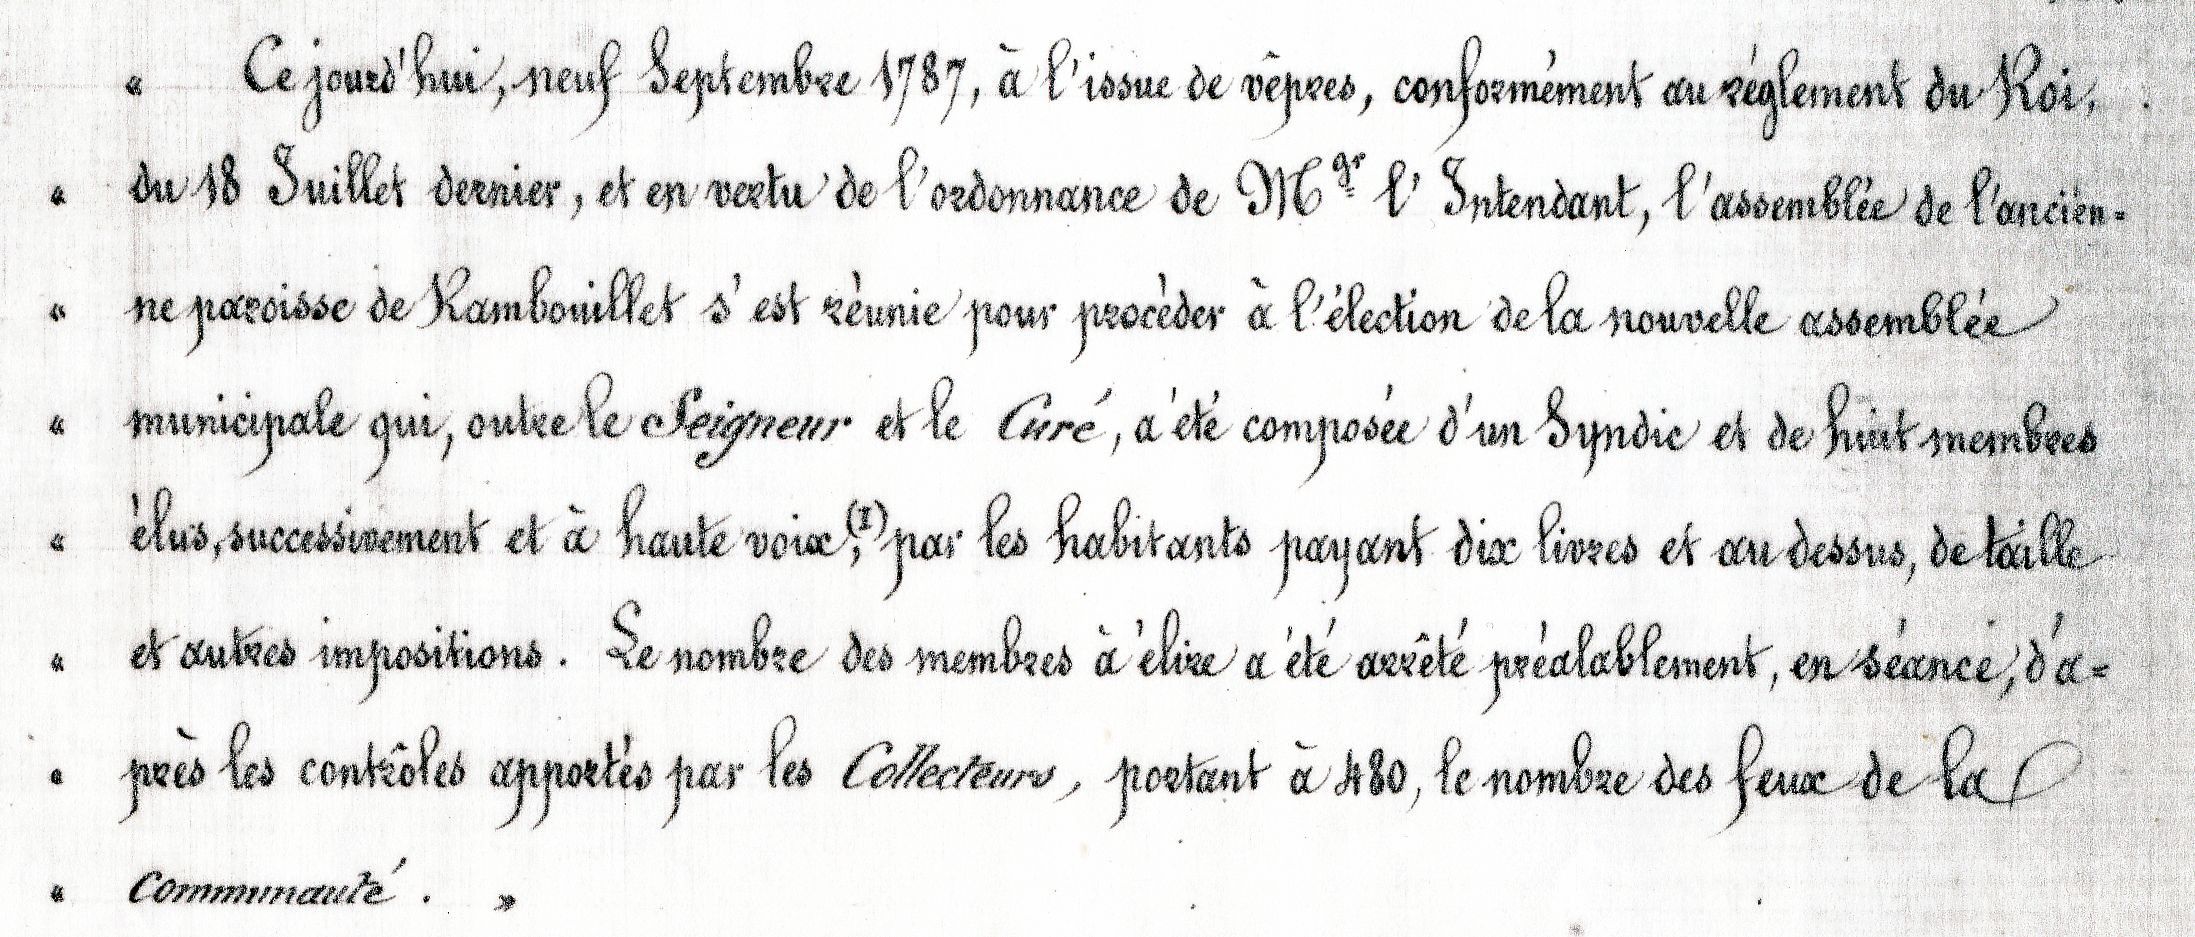 « Ce jourd'hui, neuf Septembre 1787, à l'issue de vêpres, conformément au réglement du Roi,
« du 18 Juillet dernier, et en vertu de l'ordonnance de Mgr l'Intendant, l'assemblée de l'ancien=
« ne paroisse de Rambouillet s'est réunie pour procéder à l'élection de la nouvelle assemblée
« municipale qui, outre le Seigneur et le Curé, a été composée d'un Syndic et de huit membres
« élus, successivement et à haute voix,(1) par les habitants payant dix livres et au dessus, de taille
« et autres impositions. Le nombre des membres à élire a été arrêté préalablement, en séance, d'a=
« près les contrôles apportés par les Collecteurs, portant à 480, le nombre des feux de la
« Communauté. »